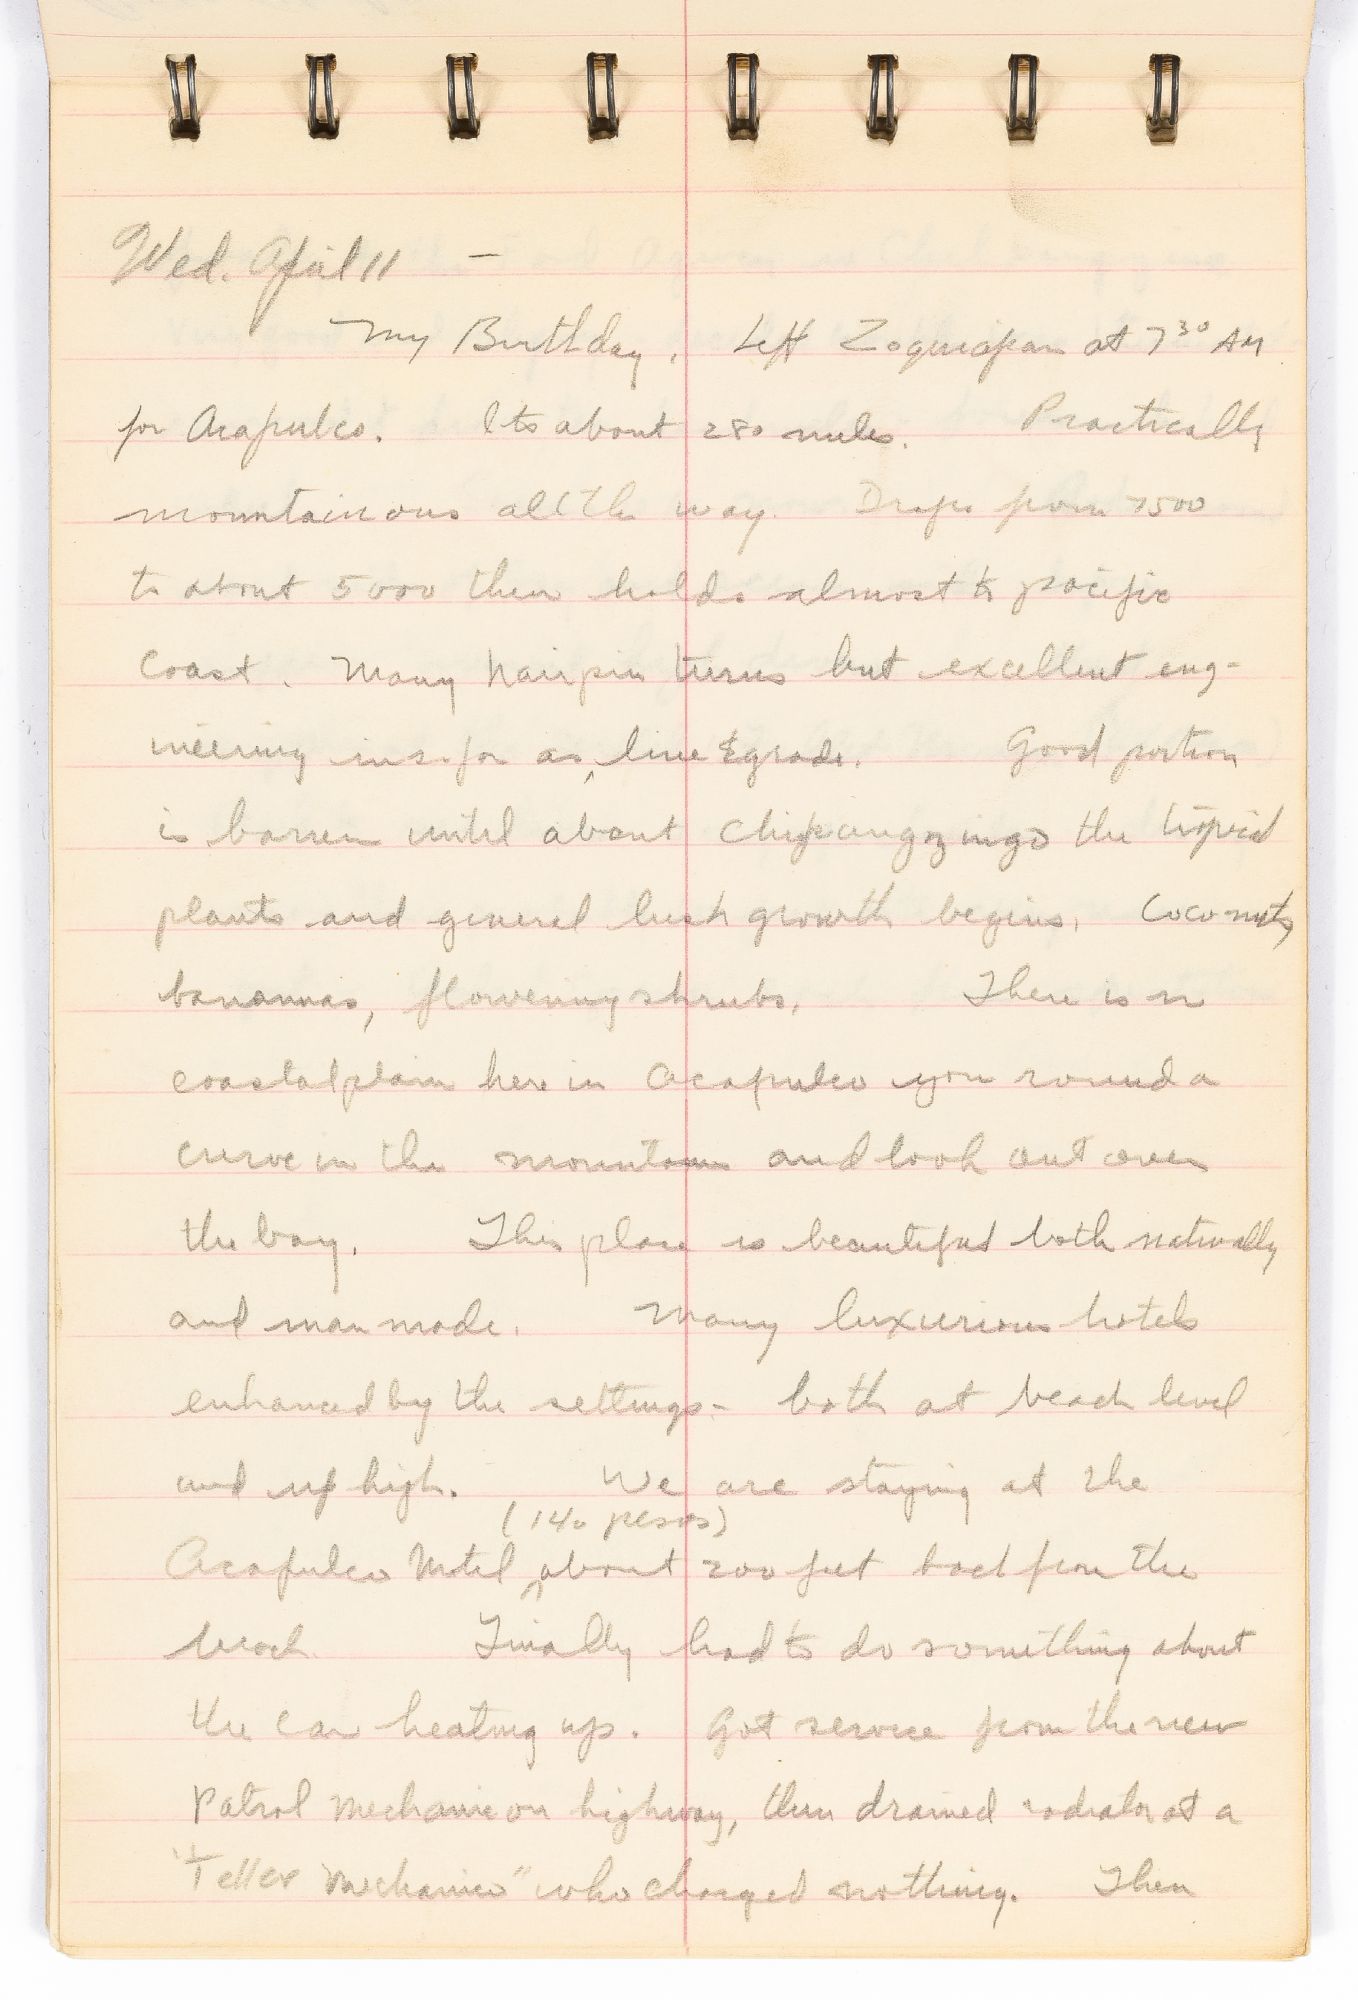 Wed. April 11 —
My Birthday. Left Zoquiapan at 7³⁰ AM
for Acapulco. Its about 280 miles. Practically
mountainous all the way. Drops from 7500
to about 5000 then holds almost to pacific
coast. Many hairpin turns but excellent eng-
ineering insofar as line & grade. Good portion
is barren until about Chipangzingo the tropical
plants and general lush growth begins. Coconuts,
banannas, flowering shrubs. There is no
coastal plain here in Acapulco you round a
curve in the mountains and look out over
the bay. This place is beautiful both naturally
and man made. Many luxurious hotels
enhanced by the settings - both at beach level
and up high. We are staying at the
(140 pesos)
Acapulco Motel ^ about 200 feet back from the
beach. Finally had to do something about
the car heating up. Got service from the new
Patrol Mechanic on highway, then drained radiator at a
" Mechanico" who charged nothing. Then